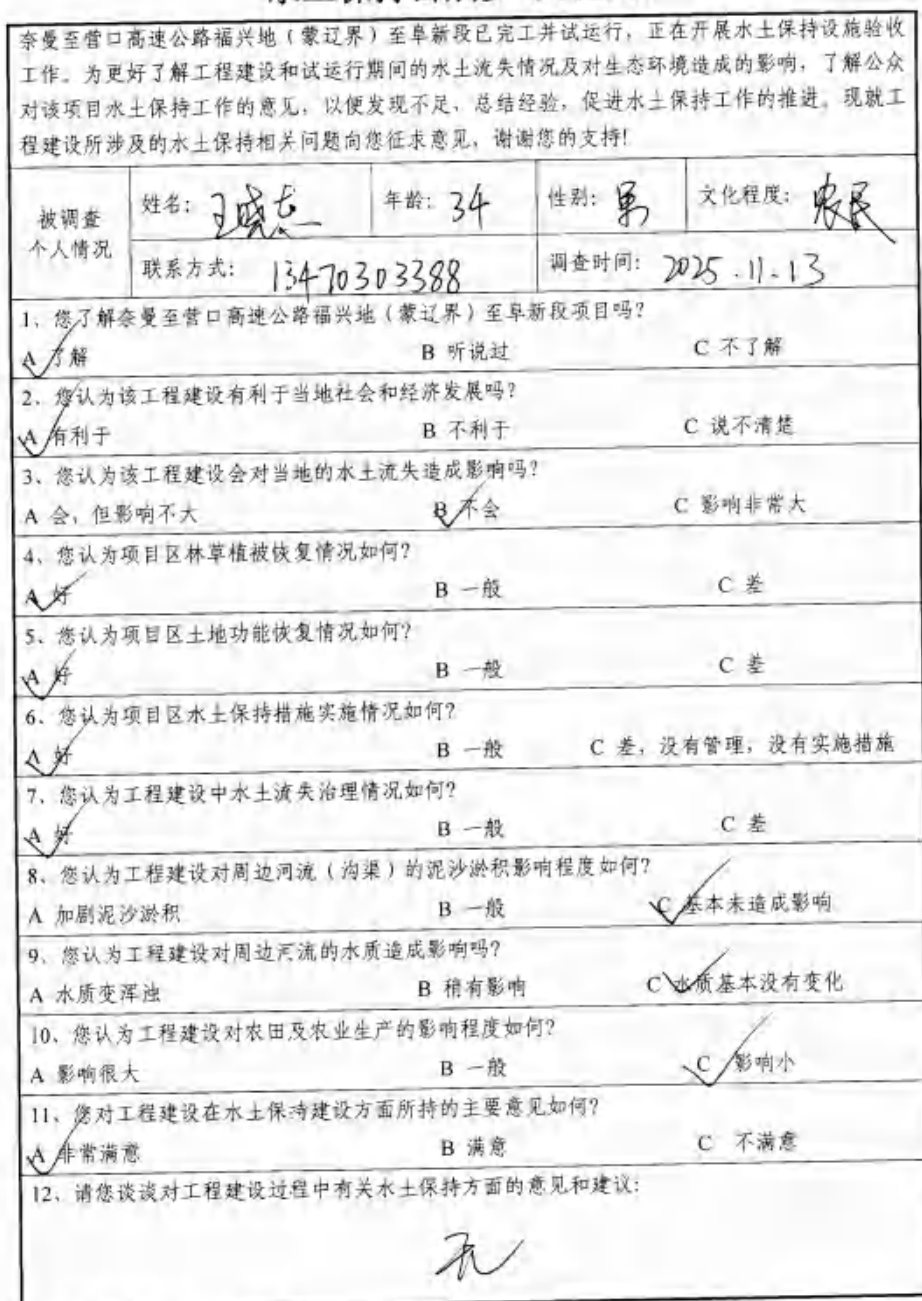 奈曼至营口高速公路福兴地（蒙辽界）至阜新段已完工并试运行，正在开展水土保持设施验收
工作。为更好了解工程建设和试运行期间的水土流失情况及对生态环境造成的影响，了解公众
对该项目水土保持工作的意见，以便发现不足、总结经验，促进水土保持工作的推进。现就工
程建设所涉及的水土保持相关问题向您征求意见，谢谢您的支持!
被调查
个人情况
姓名：王晓志 年龄：34 性别：男 文化程度：农民
联系方式：13470303388 调查时间：2025.11.13
1、您了解奈曼至营口高速公路福兴地（蒙辽界）至阜新段项目吗?
A 了解 B 听说过 C 不了解
2、您认为该工程建设有利于当地社会和经济发展吗?
A 有利于 B 不利于 C 说不清楚
3、您认为该工程建设会对当地的水土流失造成影响吗?
A 会，但影响不大 B 不会 C 影响非常大
4、您认为项目区林草植被恢复情况如何?
A 好 B 一般 C 差
5、您认为项目区土地功能恢复情况如何?
A 好 B 一般 C 差
6、您认为项目区水土保持措施实施情况如何?
A 好 B 一般 C 差，没有管理，没有实施措施
7、您认为工程建设中水土流失治理情况如何?
A 好 B 一般 C 差
8、您认为工程建设对周边河流（沟渠）的泥沙淤积影响程度如何?
A 加剧泥沙淤积 B 一般 C 基本未造成影响
9、您认为工程建设对周边河流的水质造成影响吗?
A 水质变浑浊 B 稍有影响 C 水质基本没有变化
10、您认为工程建设对农田及农业生产的影响程度如何?
A 影响很大 B 一般 C 影响小
11、您对工程建设在水土保持建设方面所持的主要意见如何?
A 非常满意 B 满意 C 不满意
12、请您谈谈对工程建设过程中有关水土保持方面的意见和建议:
无